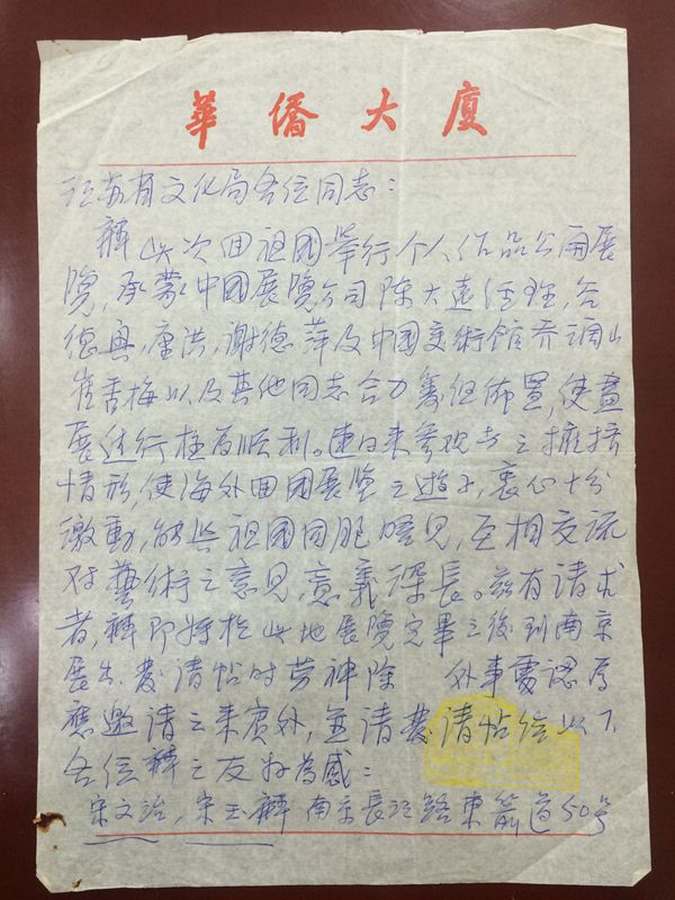 華僑大廈
江苏省文化局各位同志：
麟此次回祖國舉行个人作品公開展
覽，承蒙中國展覽公司陈大遠经理，
德典，唐洪，谢德萍及中國美術館
崔秀梅以及其他同志合力籌组佈置，使畫
展进行極为顺利。連日来参观者之擁擠
情形，使海外回國展覽之遊子，衷心十分
激動，能與祖國同胞晤見，互相交流
对藝術之意见，意義深長。兹有请求
者，麟即將於此地展覽完畢之後到南京
展出，發请帖时劳神除 外事處認为
應邀请之来宾外，並请發请帖给以下
各位麟之友好为感：
宋文治，宋玉麟 南京長江路東箭道50号